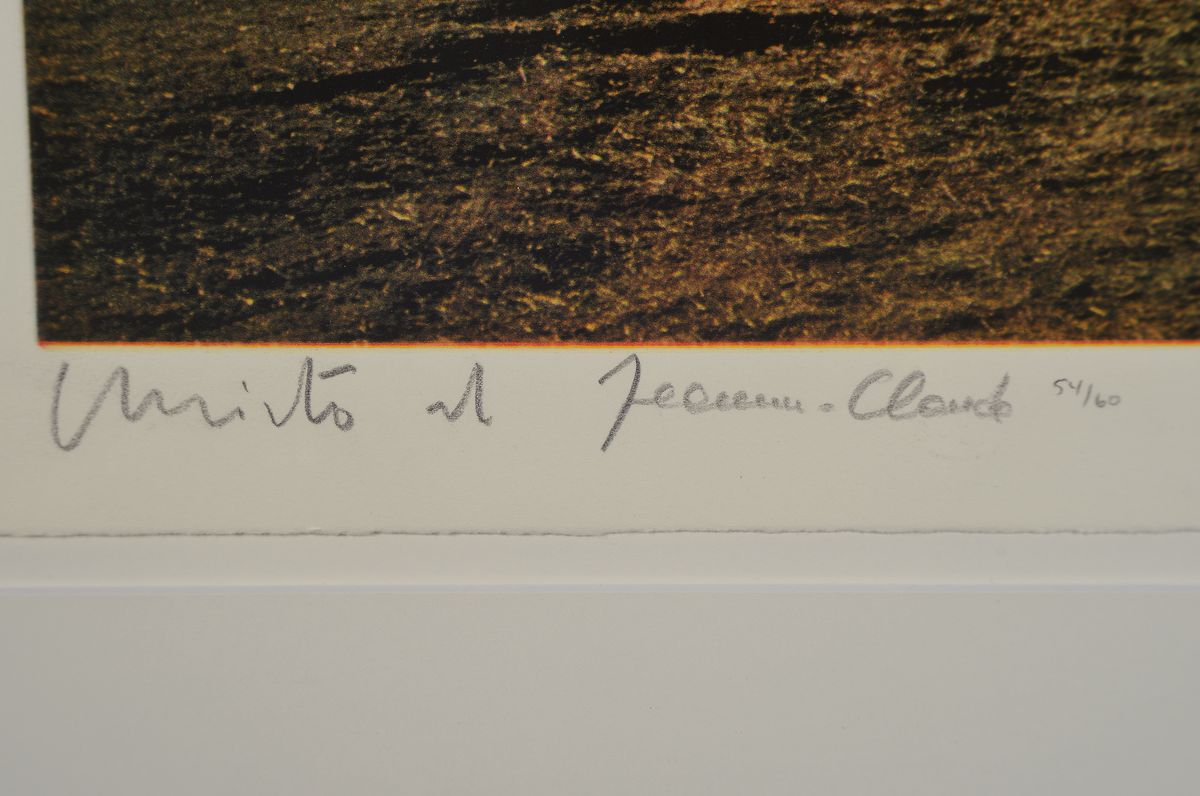 Christo et Jeanne-Claude 54/60